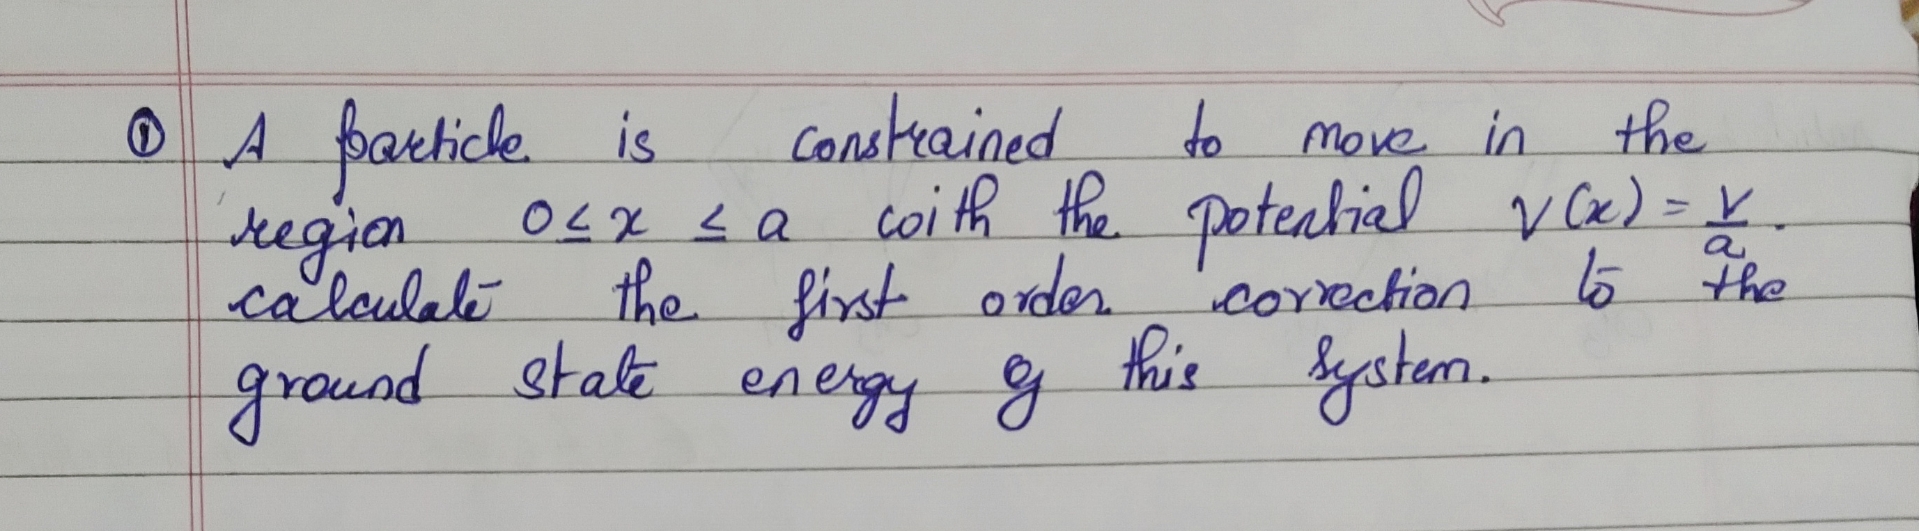 ① A particle is constrained to move in the
region 0 ≤ x ≤ a with the potential V(x) = V/a.
calculate the first order correction to the
ground state energy of this system.